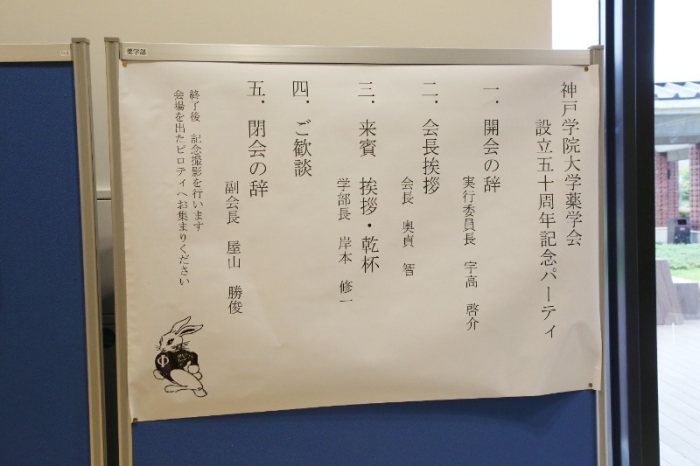 薬学部
神戸学院大学薬学会
設立五十周年記念パーティ
一．開会の辞
実行委員長　宇高　啓介
二．会長挨拶
会長　奥貞　智
三．来賓　挨拶・乾杯
学部長　岸本　修一
四．ご歓談
五．閉会の辞
副会長　屋山　勝俊
終了後　記念撮影を行います
会場を出たピロティへお集まりください
Φ